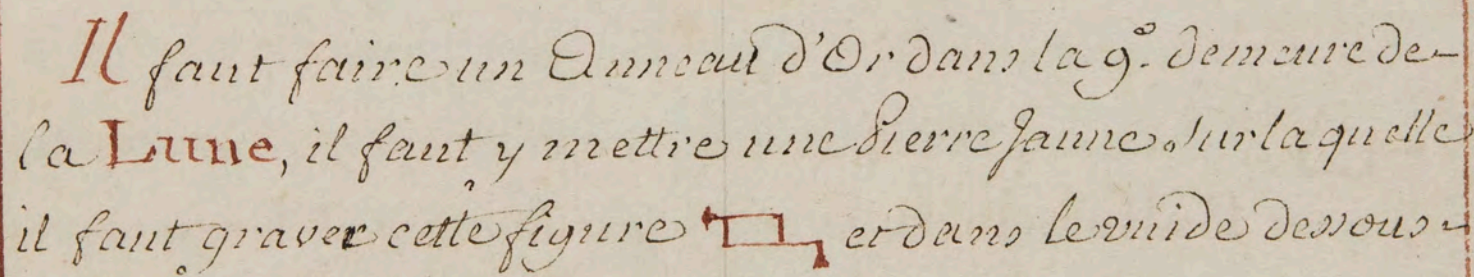 Il faut faire un Anneau d'Or dans la 9.e demeure de
la Lune, il faut y mettre une Pierre Jaune sur la quelle
il faut graver cette figure et dans le vuide dessous